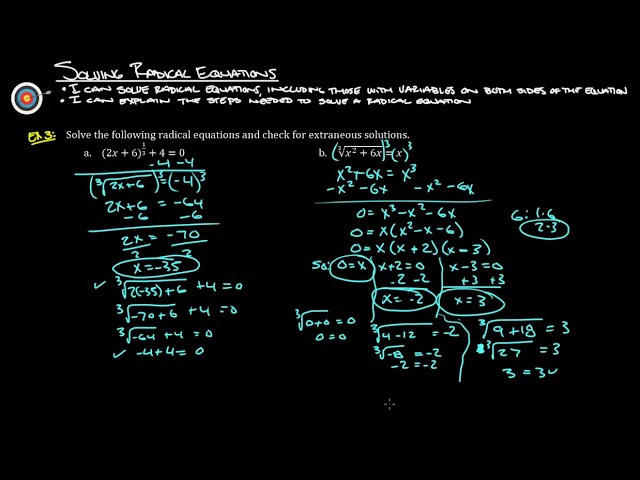 SOLVING RADICAL EQUATIONS
• I CAN SOLVE RADICAL EQUATIONS, INCLUDING THOSE WITH VARIABLES ON BOTH SIDES OF THE EQUATION
• I CAN EXPLAIN THE STEPS NEEDED TO SOLVE A RADICAL EQUATION
EX 3: Solve the following radical equations and check for extraneous solutions.
a. (2x + 6)^(1/3) + 4 = 0
-4 -4
(∛(2x+6))³ = (-4)³
2x+6 = -64
-6 -6
2x = -70
2 2
x = -35
✓ ∛(2(-35)+6) +4 = 0
∛(-70+6) +4 = 0
∛(-64) +4 = 0
✓ -4+4 = 0
b. (∛(x² + 6x))³ = (x)³
x²+6x = x³
-x²-6x -x²-6x
0 = x³-x²-6x
0 = x(x²-x-6)
0 = x(x+2)(x-3)
6: 1·6
2·3
SO: 0=x x+2=0 x-3=0
-2 -2 +3 +3
x=-2 x=3
∛(0+0) = 0
0=0
∛(4-12) = -2
∛(-8) = -2
-2=-2
∛(9+18) = 3
∛27 = 3
3=3 ✓